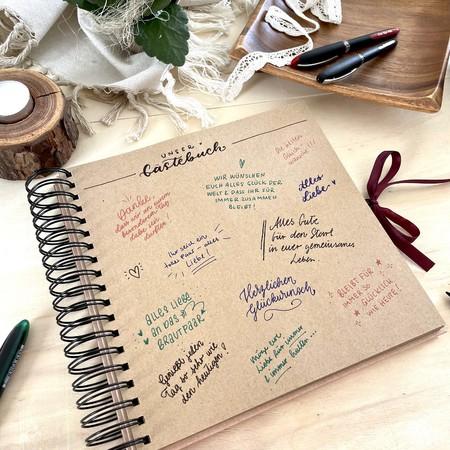 UNSER
Gästebuch
Danke,
dass wir an eurem
besonderen Tag
dabei sein
durften!
WIR WÜNSCHEN
EUCH ALLES GLÜCK DER
WELT & DASS IHR FÜR
IMMER ZUSAMMEN
BLEIBT!
Die besten
Alles
Liebe
Ihr seid ein
tolles Paar - alles
Liebe!
Alles Gute
für den Start
in euer gemeinsames
Leben..
ALLES LIEBE
AN DAS
BRAUTPAAR
Herzlichen
Glückwunsch
BLEIBT FÜR
IMMER SO
GLÜCKLICH
WIE HEUTE!
Genießt jeden
Tag so sehr wie
den heutigen!
Möge eure
Liebe für immer
& immer halten...